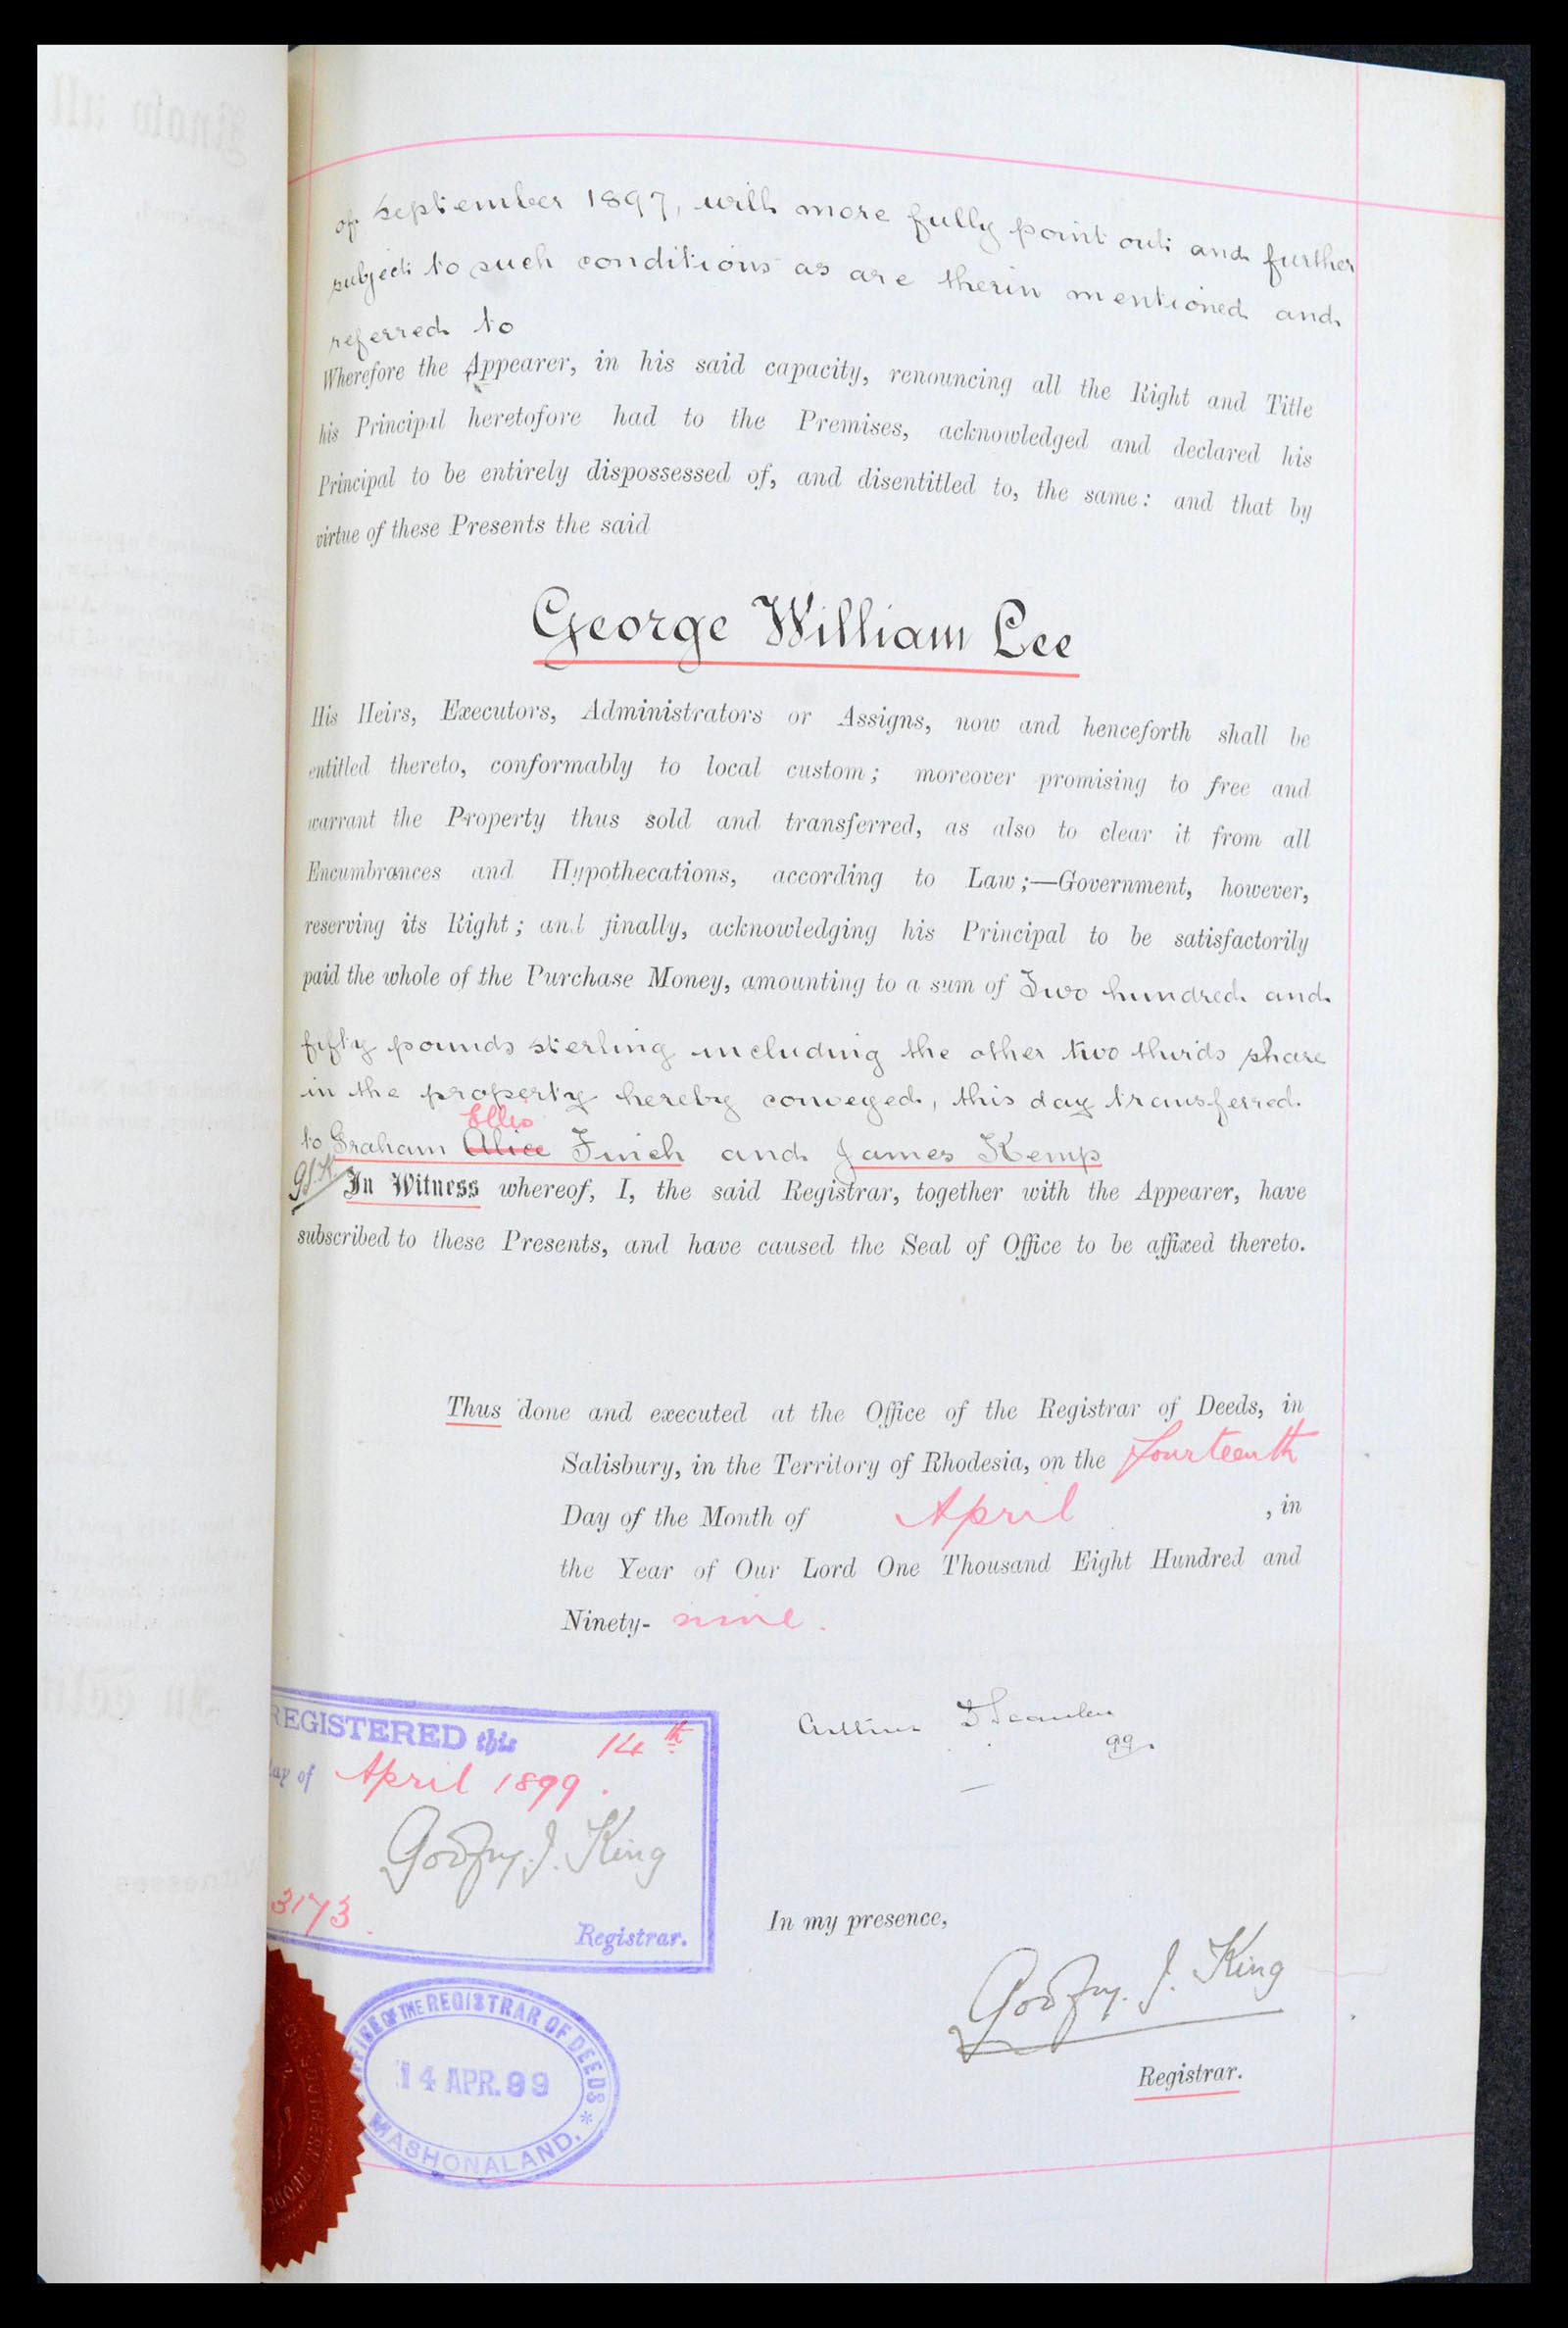 of September 1897, will more fully point out and further
subject to such conditions as are therin mentioned and
referred to
Wherefore the Appearer, in his said capacity, renouncing all the Right and Title
his Principal heretofore had to the Premises, acknowledged and declared his
Principal to be entirely dispossessed of, and disentitled to, the same: and that by
virtue of these Presents the said
George William Lee
His Heirs, Executors, Administrators or Assigns, now and henceforth shall be
entitled thereto, conformably to local custom; moreover promising to free and
warrant the Property thus sold and transferred, as also to clear it from all
Encumbrances and Hypothecations, according to Law;—Government, however,
reserving its Right; and finally, acknowledging his Principal to be satisfactorily
paid the whole of the Purchase Money, amounting to a sum of Two hundred and
fifty pounds sterling including the other two thirds share
in the property hereby conveyed, this day transferred
Ellis
to Graham Alice Finch and James Kemp
In Witness whereof, I, the said Registrar, together with the Appearer, have
subscribed to these Presents, and have caused the Seal of Office to be affixed thereto.
Thus done and executed at the Office of the Registrar of Deeds, in
Salisbury, in the Territory of Rhodesia, on the fourteenth
Day of the Month of April, in
the Year of Our Lord One Thousand Eight Hundred and
Ninety- nine.
qq.
REGISTERED this 14th
day of April 1899.
Godfrey J. King
3173.
Registrar.
In my presence,
Godfrey J. King
Registrar.
OFFICE OF THE REGISTRAR OF DEEDS
14 APR. 99
MASHONALAND.